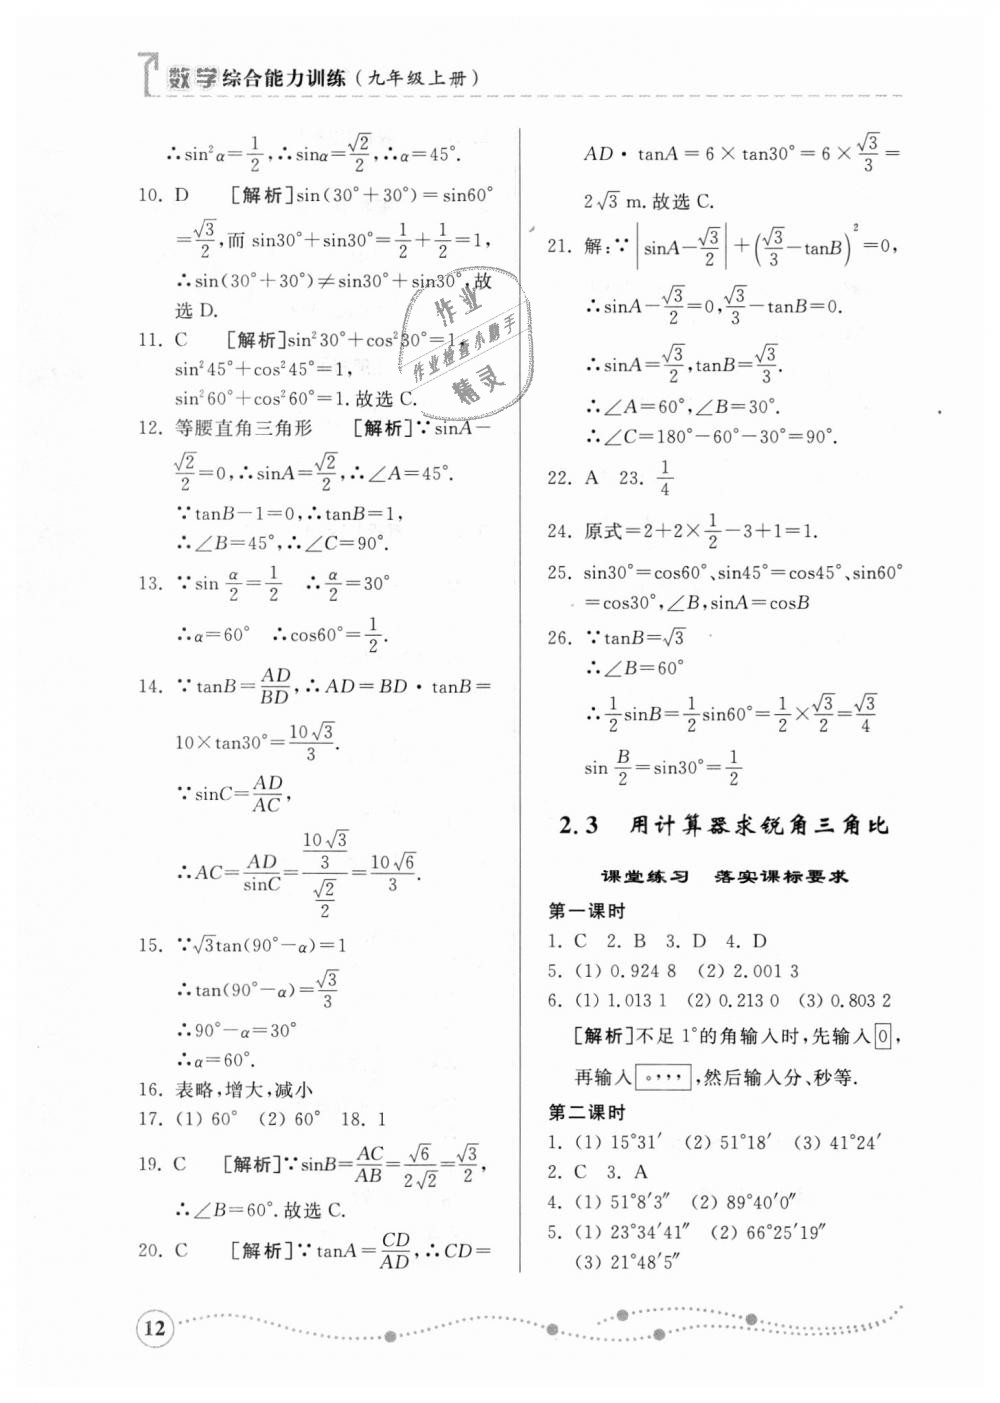 数学 综合能力训练(九年级上册)
∴sin²α=1/2,∴sinα=√2/2,∴α=45°.
10. D [解析]sin(30°+30°)=sin60°
=√3/2,而 sin30°+sin30°=1/2+1/2=1,
∴sin(30°+30°)≠sin30°+sin30°,故
选 D.
11. C [解析]sin²30°+cos²30°=1,
sin²45°+cos²45°=1,
sin²60°+cos²60°=1.故选 C.
12. 等腰直角三角形 [解析]∵sinA-
√2/2=0,∴sinA=√2/2,∴∠A=45°.
∵tanB-1=0,∴tanB=1,
∴∠B=45°,∴∠C=90°.
13. ∵sin α/2=1/2 ∴α/2=30°
∴α=60° ∴cos60°=1/2.
14. ∵tanB=AD/BD,∴AD=BD·tanB=
10×tan30°=10√3/3.
∵sinC=AD/AC,
∴AC=AD/sinC=(10√3/3)/(√2/2)=10√6/3.
15. ∵√3tan(90°-α)=1
∴tan(90°-α)=√3/3
∴90°-α=30°
∴α=60°.
16. 表略,增大,减小
17. (1) 60° (2) 60° 18. 1
19. C [解析]∵sinB=AC/AB=√6/2√2=√3/2,
∴∠B=60°.故选 C.
20. C [解析]∵tanA=CD/AD,∴CD=
AD·tanA=6×tan30°=6×√3/3=
2√3 m.故选 C.
21. 解:∵|sinA-√3/2|+(√3/3-tanB)²=0,
∴sinA-√3/2=0,√3/3-tanB=0.
∴sinA=√3/2,tanB=√3/3.
∴∠A=60°,∠B=30°.
∴∠C=180°-60°-30°=90°.
22. A 23. 1/4
24. 原式=2+2×1/2-3+1=1.
25. sin30°=cos60°、sin45°=cos45°、sin60°
=cos30°,∠B,sinA=cosB
26. ∵tanB=√3
∴∠B=60°
∴1/2sinB=1/2sin60°=1/2×√3/2=√3/4
sin B/2=sin30°=1/2
2.3 用计算器求锐角三角比
课堂练习 落实课标要求
第一课时
1. C 2. B 3. D 4. D
5. (1) 0.924 8 (2) 2.001 3
6. (1) 1.013 1 (2) 0.213 0 (3) 0.803 2
[解析]不足 1°的角输入时,先输入 0 ,
再输入 °,,, ,然后输入分、秒等.
第二课时
1. (1) 15°31′ (2) 51°18′ (3) 41°24′
2. C 3. A
4. (1) 51°8′3″ (2) 89°40′0″
5. (1) 23°34′41″ (2) 66°25′19″
(3) 21°48′5″
12
作业
作业检查小助手
精灵